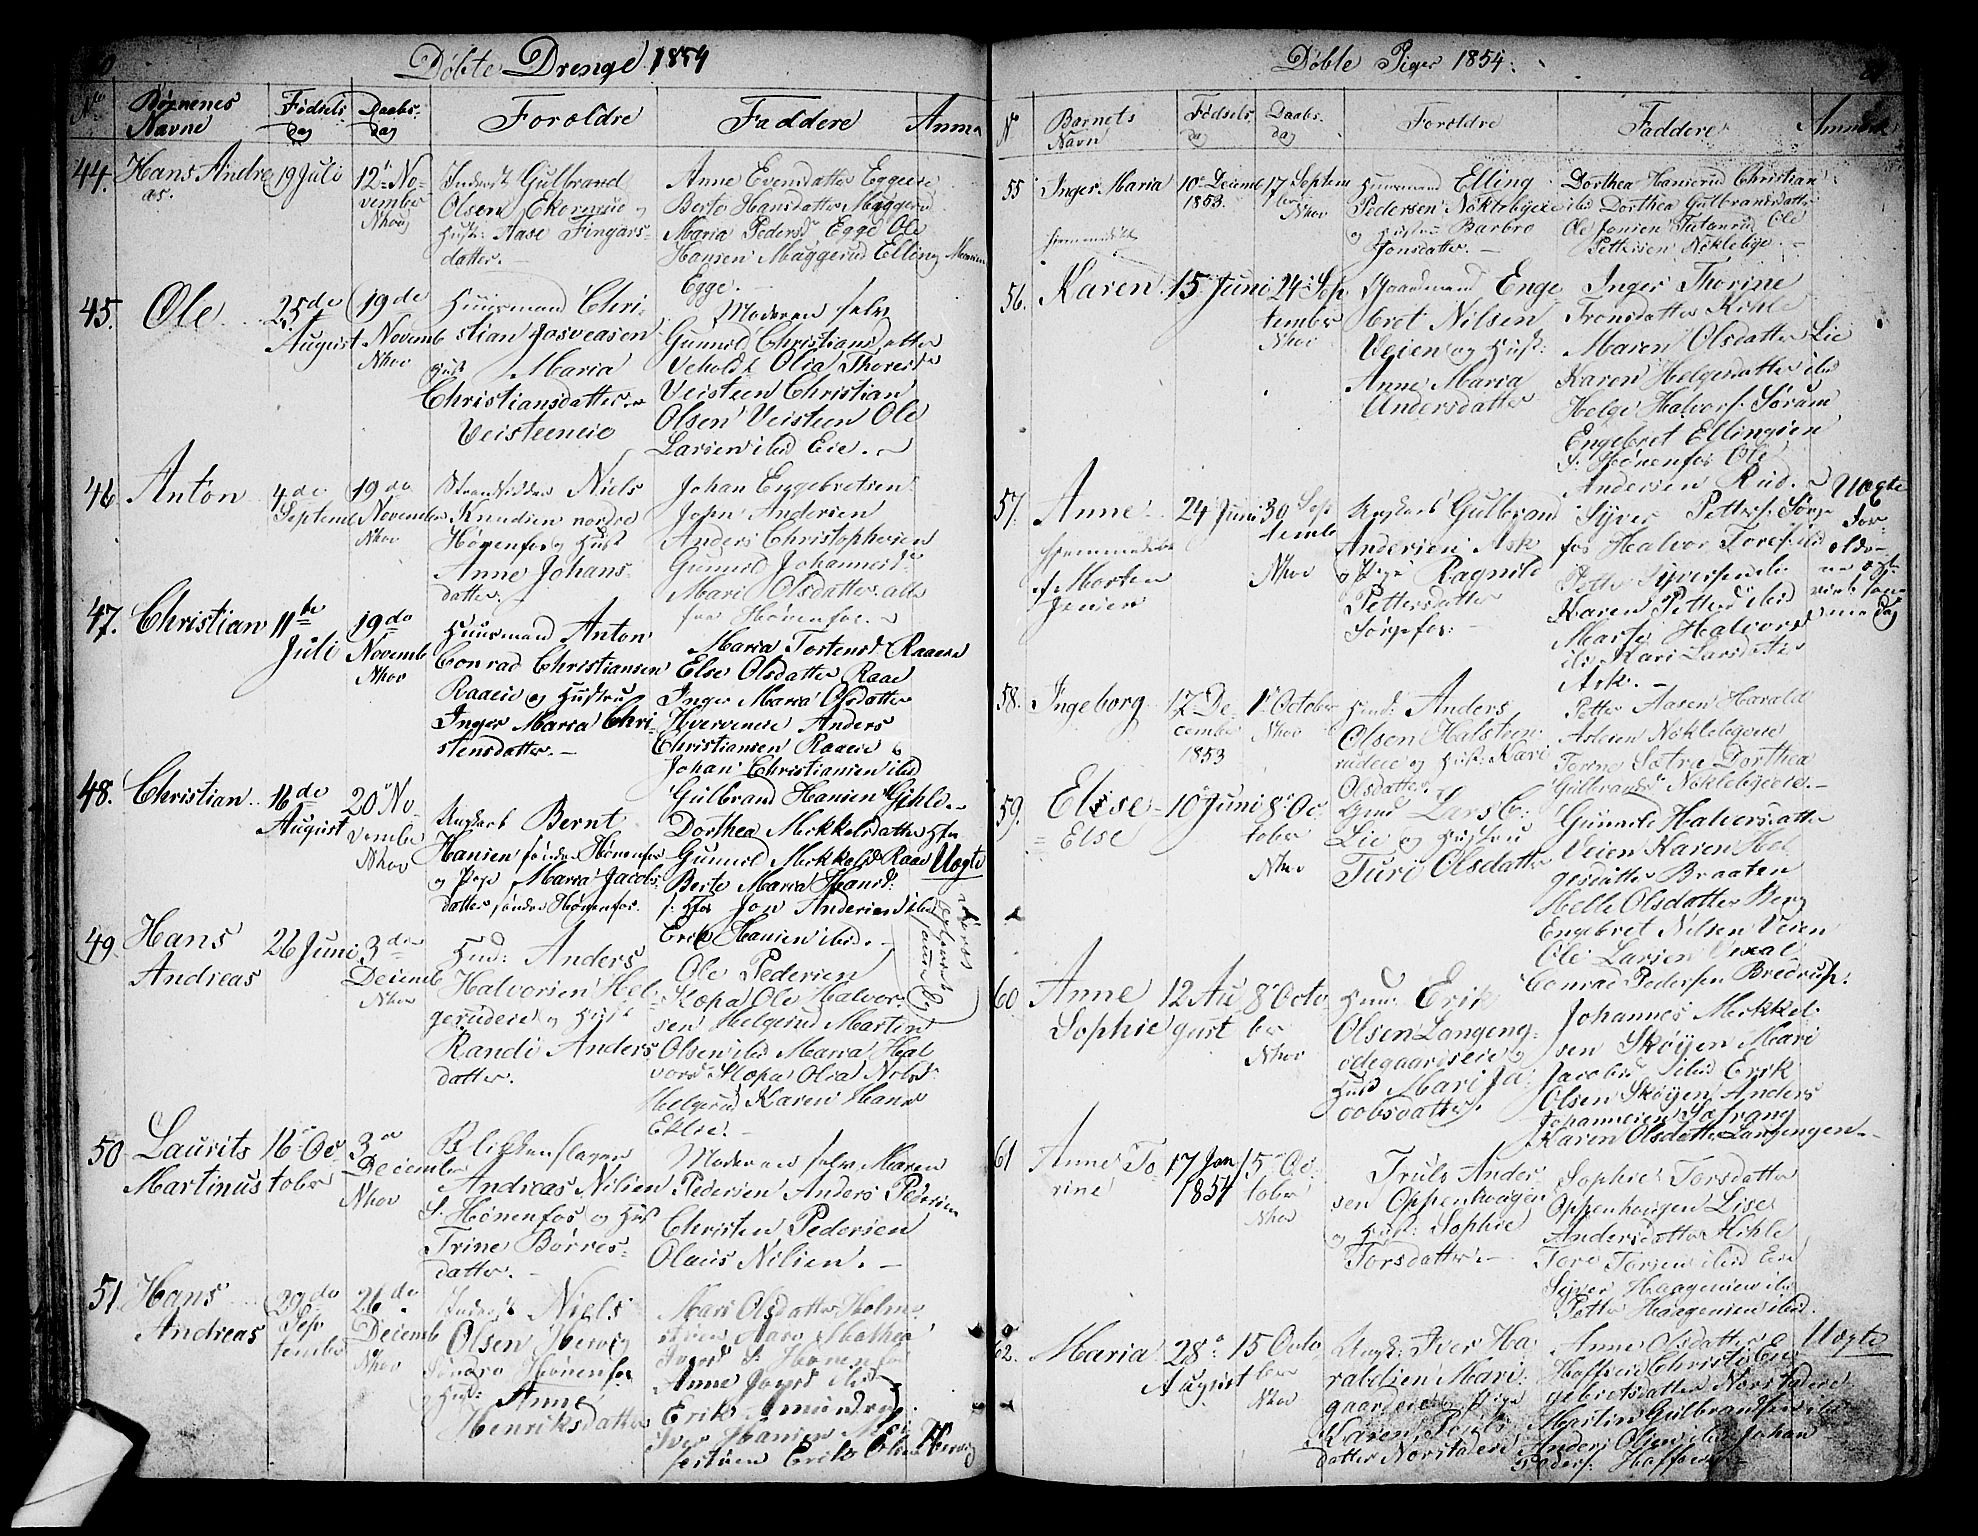 Døbte Drenge 1854
No
Børnenes Navne
Fødsels dag
Daabs dag
Foroldre
Faddere
Anm
44. Hans Andreas.
19 Juli
12te November Nhov
Inderst Gulbrand
Olsen Ekorneie og
Hust: Aase Fingars-
datter.
Anne Evensdatter Eggeeie
Berte Hansdatter Maggerud
Maria Pedersd Egge Ole
Hansen Maggerud Elling
Egge. -
45. Ole
25de August
19de Novemb Nhov
Huusmand Chri-
stian Josveasen
Hust Maria
Christiansdatter
Veisteeneie
Moderen selv
Gunnild Christiansdatter
Veholdt Olia Thoresd
Veisteen Christian
Olsen Veisteen Ole
Larsen ibid Eie. -
46. Anton
4de Septemb
19de November Nhov
Strandsidder Niels
Knudsen nordre
Hønenfos og Hust
Anne Johans
datter. -
Johan Engebretsen
John Andersen
Anders Christophersen
Gunnild Johannesd
Mari Olsdatter alle
fra Hønenfos. -
47. Christian
11te Juli
19de Novemb Nhov
Huusmand Anton
Conrad Christiansen
Raaeie og Hustru
Inger Maria Chri-
stensdatter. -
Maria Tostensd Raaeie
Else Olsdatter Raae
Inger Maria Olsdatter
Hverveneie Anders
Christiansen Raaeie
Johan Christiansen ibid
Gulbrand Hansen Gihle. -
48. Christian
16de August
20 November Nhov
Ungkarl Bernt
Hansen søndre Hønenfos
og Pige Maria Jacobs
datter søndre Hønenfos.
Dorthea Mikkelsdatter Hfos
Gunnild Mikkelsd Raae
Berte Maria Hansd:
S. Hfos Jon Andersen ibid
Erik Hansen ibid. -
Uegte
49. Hans Andreas
26 Juni
3die Decemb Nhov
Huusd: Anders
Halvorsen Hel-
gerudeie og Hust
Randi Anders
datter.
Ole Pedersen
Slopa Ole Halvor-
sen Helgerud Martin
Olsen ibid Maria Hal
vorsd Slopa Olia Nilsd:
Helgerud Karen Hansd
Eklie. -
50 Laurits Martinus
16 October
3die December Nhov
Blikkenslager
Andreas Nilsen
S. Hønenfos og Hust
Trine Børres-
datter. -
Moderen selv Maren
Pedersen Anders Pedersen
Christen Pedersen
Olaus Nilsen. -
51 Hans Andreas
29de September
26de Decemb Nhov
Inderst Niels
Olsen Hervig
Søndre Hønenfos
og Hust: Anne
Henriksdatter
Mari Olsdatter Holm-
Iversd S. Hønenfos
Anne Iversd ibid
Erik Amundsen
Iver Hansen
Erik Olsen Hervig
Døbte Piger 1854.
No
Barnets Navn
Fødsels dag
Daabs dag
Foroldre
Faddere
Anmærk
55 Inger Maria
hjemmedøbt
10 Decemb 1853.
17 Septem ber Nhov
Huusmand Elling
Pedersen Nøklebyeie
og Hustru Barbro
Jonsdatter. -
Dorthea Hanserud Christian
ibid Dorthea Gulbrandsdatter
Ole Jonsen Tatanrud Ole
Pettersen Nøklebye. -
56. Karen
15 Juni
24 September Nhov
Gaardmand Enge
bret Nilsen
Veien og Hust:
Anne Maria
Andersdatter
Inger Thorine
Tronsdatter
Maren Olsdatter Lie
Karen Helgesdatter ibid
Helge Halvors. Sørum
Engebret Ellingsen
S. Hønenfos Ole
Andersen Rud. -
57. Anne
hjemmedøbt
af Morten
Jensen
24 Juni
30 September Nhov
Ungkarl Gulbrand
Andersen Ask
og Pige Ragnild
Pettersdatter
Sørgefos. -
Syver Petters. Sørge
fos Halvor Tores. ibid
Petter Syversen ibid
Karen Pettersd ibid
Marte Halvorsd
ib. Kari Larsdatter
Ask. -
Uegte
For-
oldre-
ne ægt-
viet sam-
me Dag
58. Ingeborg
12 De-
cember
1853
1 October Nhov
Huusd: Anders
Olsen Halsteen-
rudeie og Hust: Kari
Olsdatter.
Petter Aasen Harald
Aslesen Nøklebyeeie
Torine Sætre Dorthea
Gulbrandsd Nøklebyeeie. -
59. Elise
= Else
10 Juni
8 October Nhov
Lars C.
Lie og Hustru
Turi Olsdatter
Gunnild Halvorsdatter
Veien Karen Hel
gesdatter Braaten
Helle Olsdatter Berg
Engebret Nilsen Veien
Ole Larsen Veien
Conrad Pedersen Bredrup.
60 Anne Sophie
12 August
8 October Nhov
Huusd: Erik
Olsen Langeng-
ødegaardseie og
Hust Mari Ja-
cobsdatter.
Johannes Mikkel-
sen Skøyen Mari
Jacobsd ibid Erik
Olsen Skøyen Anders
Johannesen Safrang
Karen Olsdatter Langengen. -
61 Anne To
rine
17 Jan
1854
15 October Nhov
Truls Ander-
sen Oppenhougen
og Hust: Sophie
Torsdatter. -
Sophie Torsdatter
Oppenhougen Lise
Andersdatter Hihle
Tore Torsen ibid Eie
Syver Haagensen ibid
Petter Haagensen ibid.
62. Maria
28 August
15 October Nhov
Ungk: Iver Ha
raldsen Mari-
gaardseie og Pige
Karen Peders
datter Norstadeie
Anne Olsdatter
Hoffseie Christi En
gebretsdatter Norstadeie
Martin Gulbrandsen ibid
Anders Olsen ibid Johan
Peders. Hoffseie -
Uegte